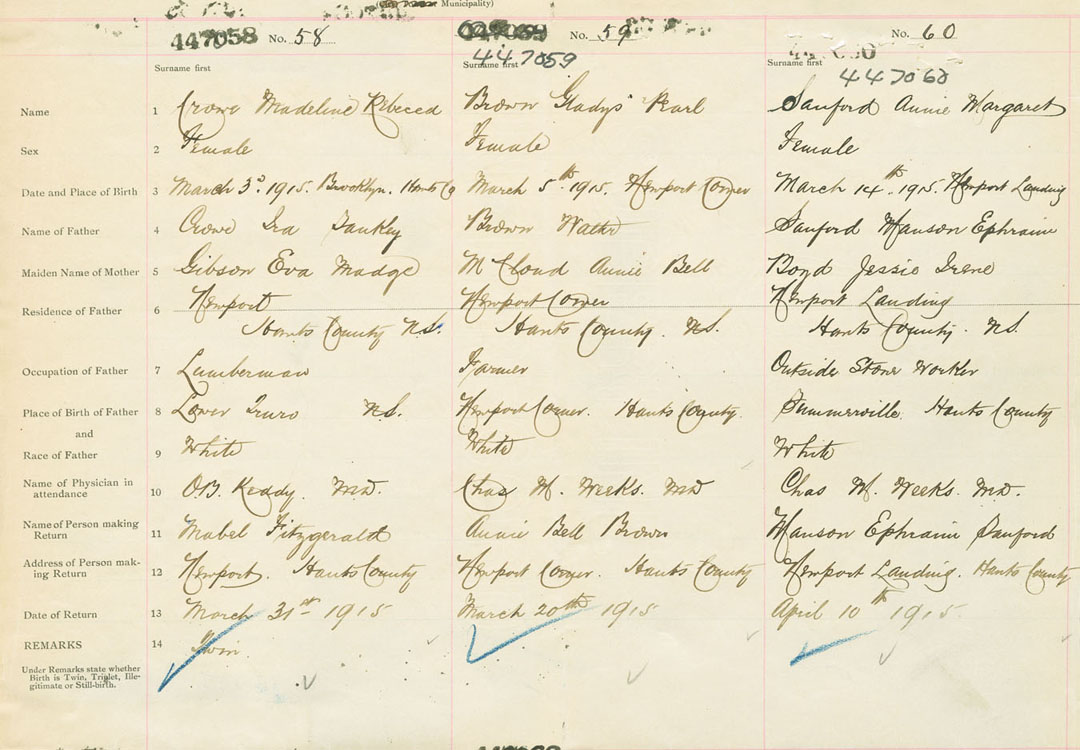 Municipality)
447058 No. 58
No. 59
No. 60
447059
447060
Surname first
Surname first
Surname first
Name 1 Crowe Madeline Rebecca Brown Gladys Pearl Sanford Annie Margaret
Sex 2 Female Female Female
Date and Place of Birth 3 March 3d. 1915. Brooklyn. Hants Co March 5th 1915. Newport Corner March 14th. 1915. Newport Landing
Name of Father 4 Crowe Ira Brown Sanford Manson Ephraim
Maiden Name of Mother 5 Gibson Eva Madge McCloud Annie Bell Boyd Jessie Irene
Residence of Father 6 Newport Newport Corner Newport Landing
Hants County N.S. Hants County. N.S. Hants County. N.S.
Occupation of Father 7 Lumberman Farmer Outside Stone Worker
Place of Birth of Father 8 Lower Truro N.S. Newport Corner. Hants County. Summerville Hants County
and
Race of Father 9 White White White
Name of Physician in
attendance 10 O.B. Keddy. M.D. Chas M. Weeks. M.D Chas M. Weeks. M.D.
Name of Person making
Return 11 Mabel Fitzgerald Annie Bell Brown Manson Ephraim Sanford
Address of Person mak-
ing Return 12 Newport. Hants County Newport Corner. Hants County Newport Landing. Hants County
Date of Return 13 March 31st 1915 March 20th 1915 April 10th 1915.
REMARKS 14 Twin.
Under Remarks state whether
Birth is Twin, Triplet, Ille-
gitimate or Still-birth.